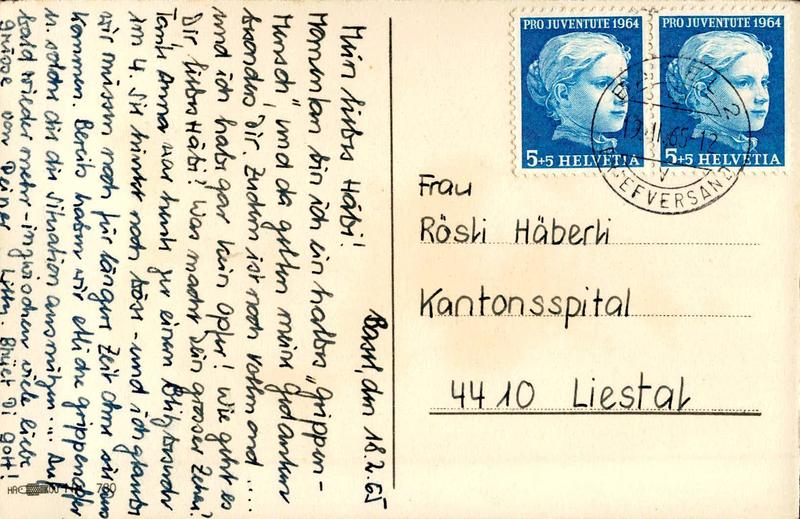 Basel, den 18.2.65
Mein liebes Häbi!
Momentan bin ich ein halber „Grippen-
Mensch" und da gelten meine Gedanken
besonders Dir. Zudem ist noch Vollmond ....
und ich habe gar kein Opfer! Wie geht es
Dir, liebes Häbi? Was macht Dein grosser Zehen?
Tante Anna war heute zu einem Blitzbesuch
im 4. Sie hinkt noch bös - und ich glaube
wir müssen noch für längere Zeit ohne sie aus
kommen. Bereits haben wir etliche Grippenopfer
u. solche die die Situation ausnützen... Auf
bald wieder mehr - inzwischen viele liebe
Grüsse von Deiner Bhüet Di Gott!
PRO JUVENTUTE 1964
5+5 HELVETIA
PRO JUVENTUTE 1964
5+5 HELVETIA
BASEL 2
19.II.65-12
BRIEFVERSAND
Frau
Rösli Häberli
Kantonsspital
4410 Liestal
700